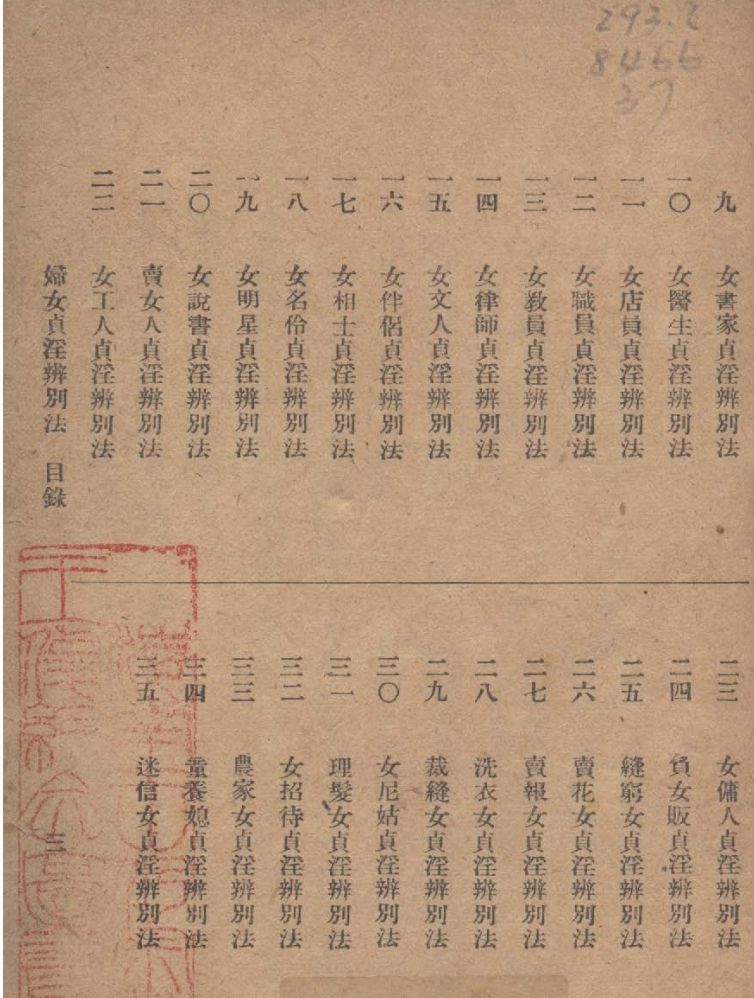 293.2
8466
37
九 女書家貞淫辨別法
一〇 女醫生貞淫辨別法
一一 女店員貞淫辨別法
一二 女職員貞淫辨別法
一三 女教員貞淫辨別法
一四 女律師貞淫辨別法
一五 女文人貞淫辨別法
一六 女伴侶貞淫辨別法
一七 女相士貞淫辨別法
一八 女名伶貞淫辨別法
一九 女明星貞淫辨別法
二〇 女說書貞淫辨別法
二一 賣女人貞淫辨別法
二二 女工人貞淫辨別法
二三 女傭人貞淫辨別法
二四 負女販貞淫辨別法
二五 縫窮女貞淫辨別法
二六 賣花女貞淫辨別法
二七 賣報女貞淫辨別法
二八 洗衣女貞淫辨別法
二九 裁縫女貞淫辨別法
三〇 女尼姑貞淫辨別法
三一 理髮女貞淫辨別法
三二 女招待貞淫辨別法
三三 農家女貞淫辨別法
三四 童養媳貞淫辨別法
三五 迷信女貞淫辨別法
婦女貞淫辨別法 目錄
三